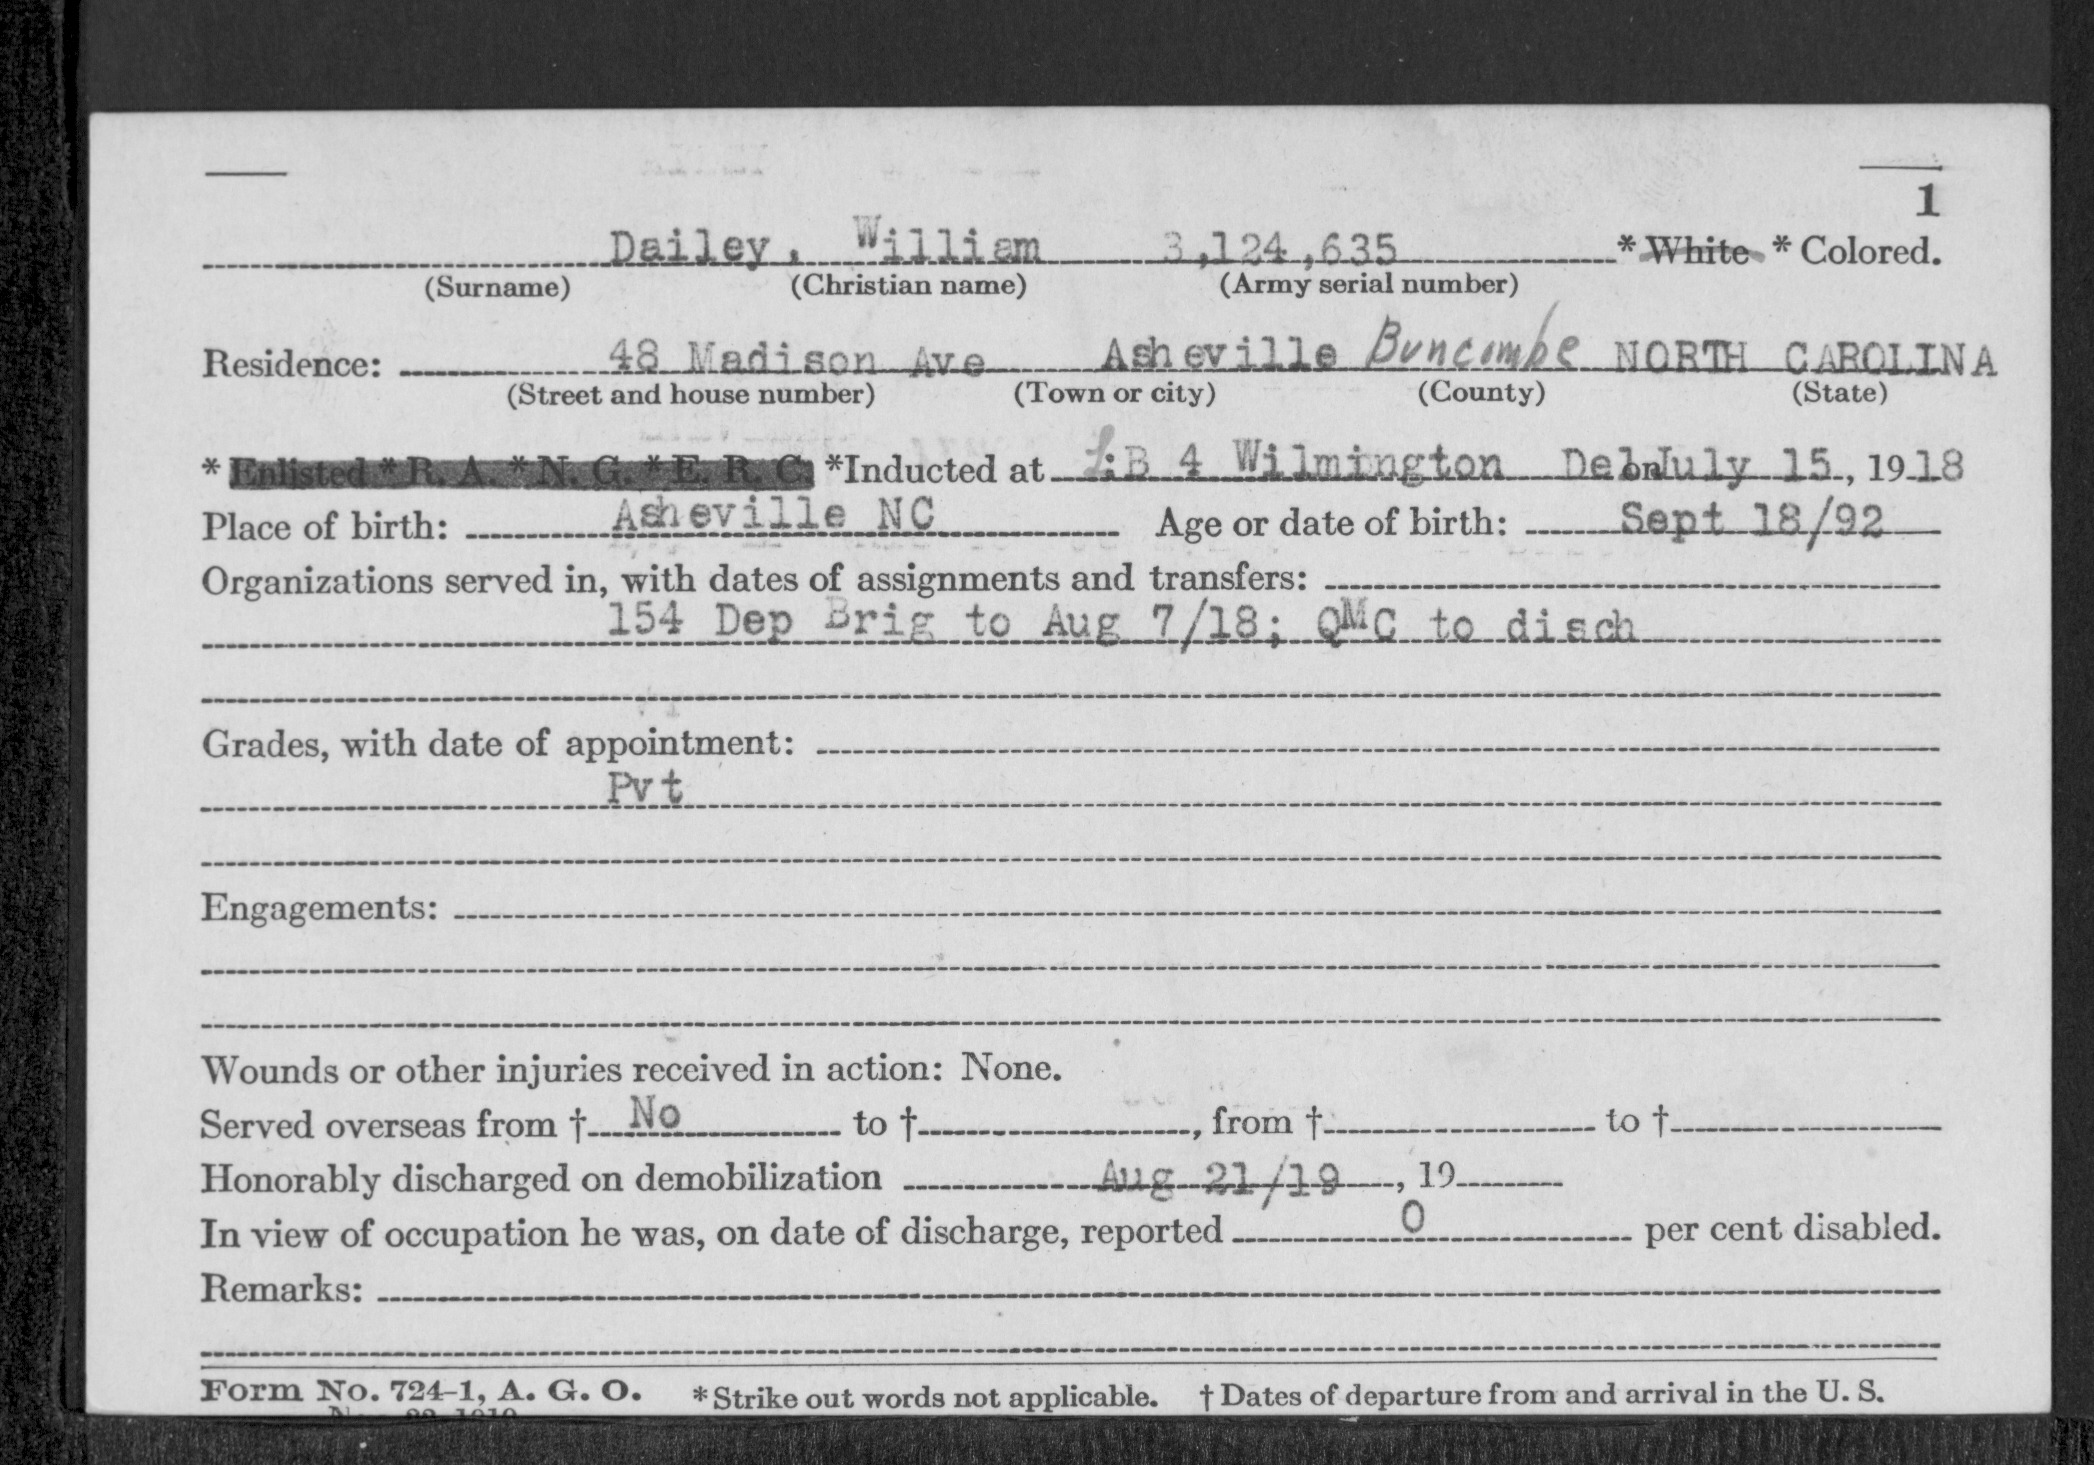 1
Dailey, William 3,124,635 * White * Colored.
(Surname) (Christian name) (Army serial number)
Residence: 48 Madison Ave Asheville Buncombe NORTH CAROLINA
(Street and house number) (Town or city) (County) (State)
* Enlisted * R. A. * N. G. * E. R. C. *Inducted at LB 4 Wilmington Del on July 15, 1918
Place of birth: Asheville NC Age or date of birth: Sept 18/92
Organizations served in, with dates of assignments and transfers:
154 Dep Brig to Aug 7/18; QMC to disch
Grades, with date of appointment:
Pvt
Engagements:
Wounds or other injuries received in action: None.
Served overseas from † No to †, from † to †
Honorably discharged on demobilization Aug 21/19, 19
In view of occupation he was, on date of discharge, reported 0 per cent disabled.
Remarks:
Form No. 724-1, A. G. O. * Strike out words not applicable. † Dates of departure from and arrival in the U. S.